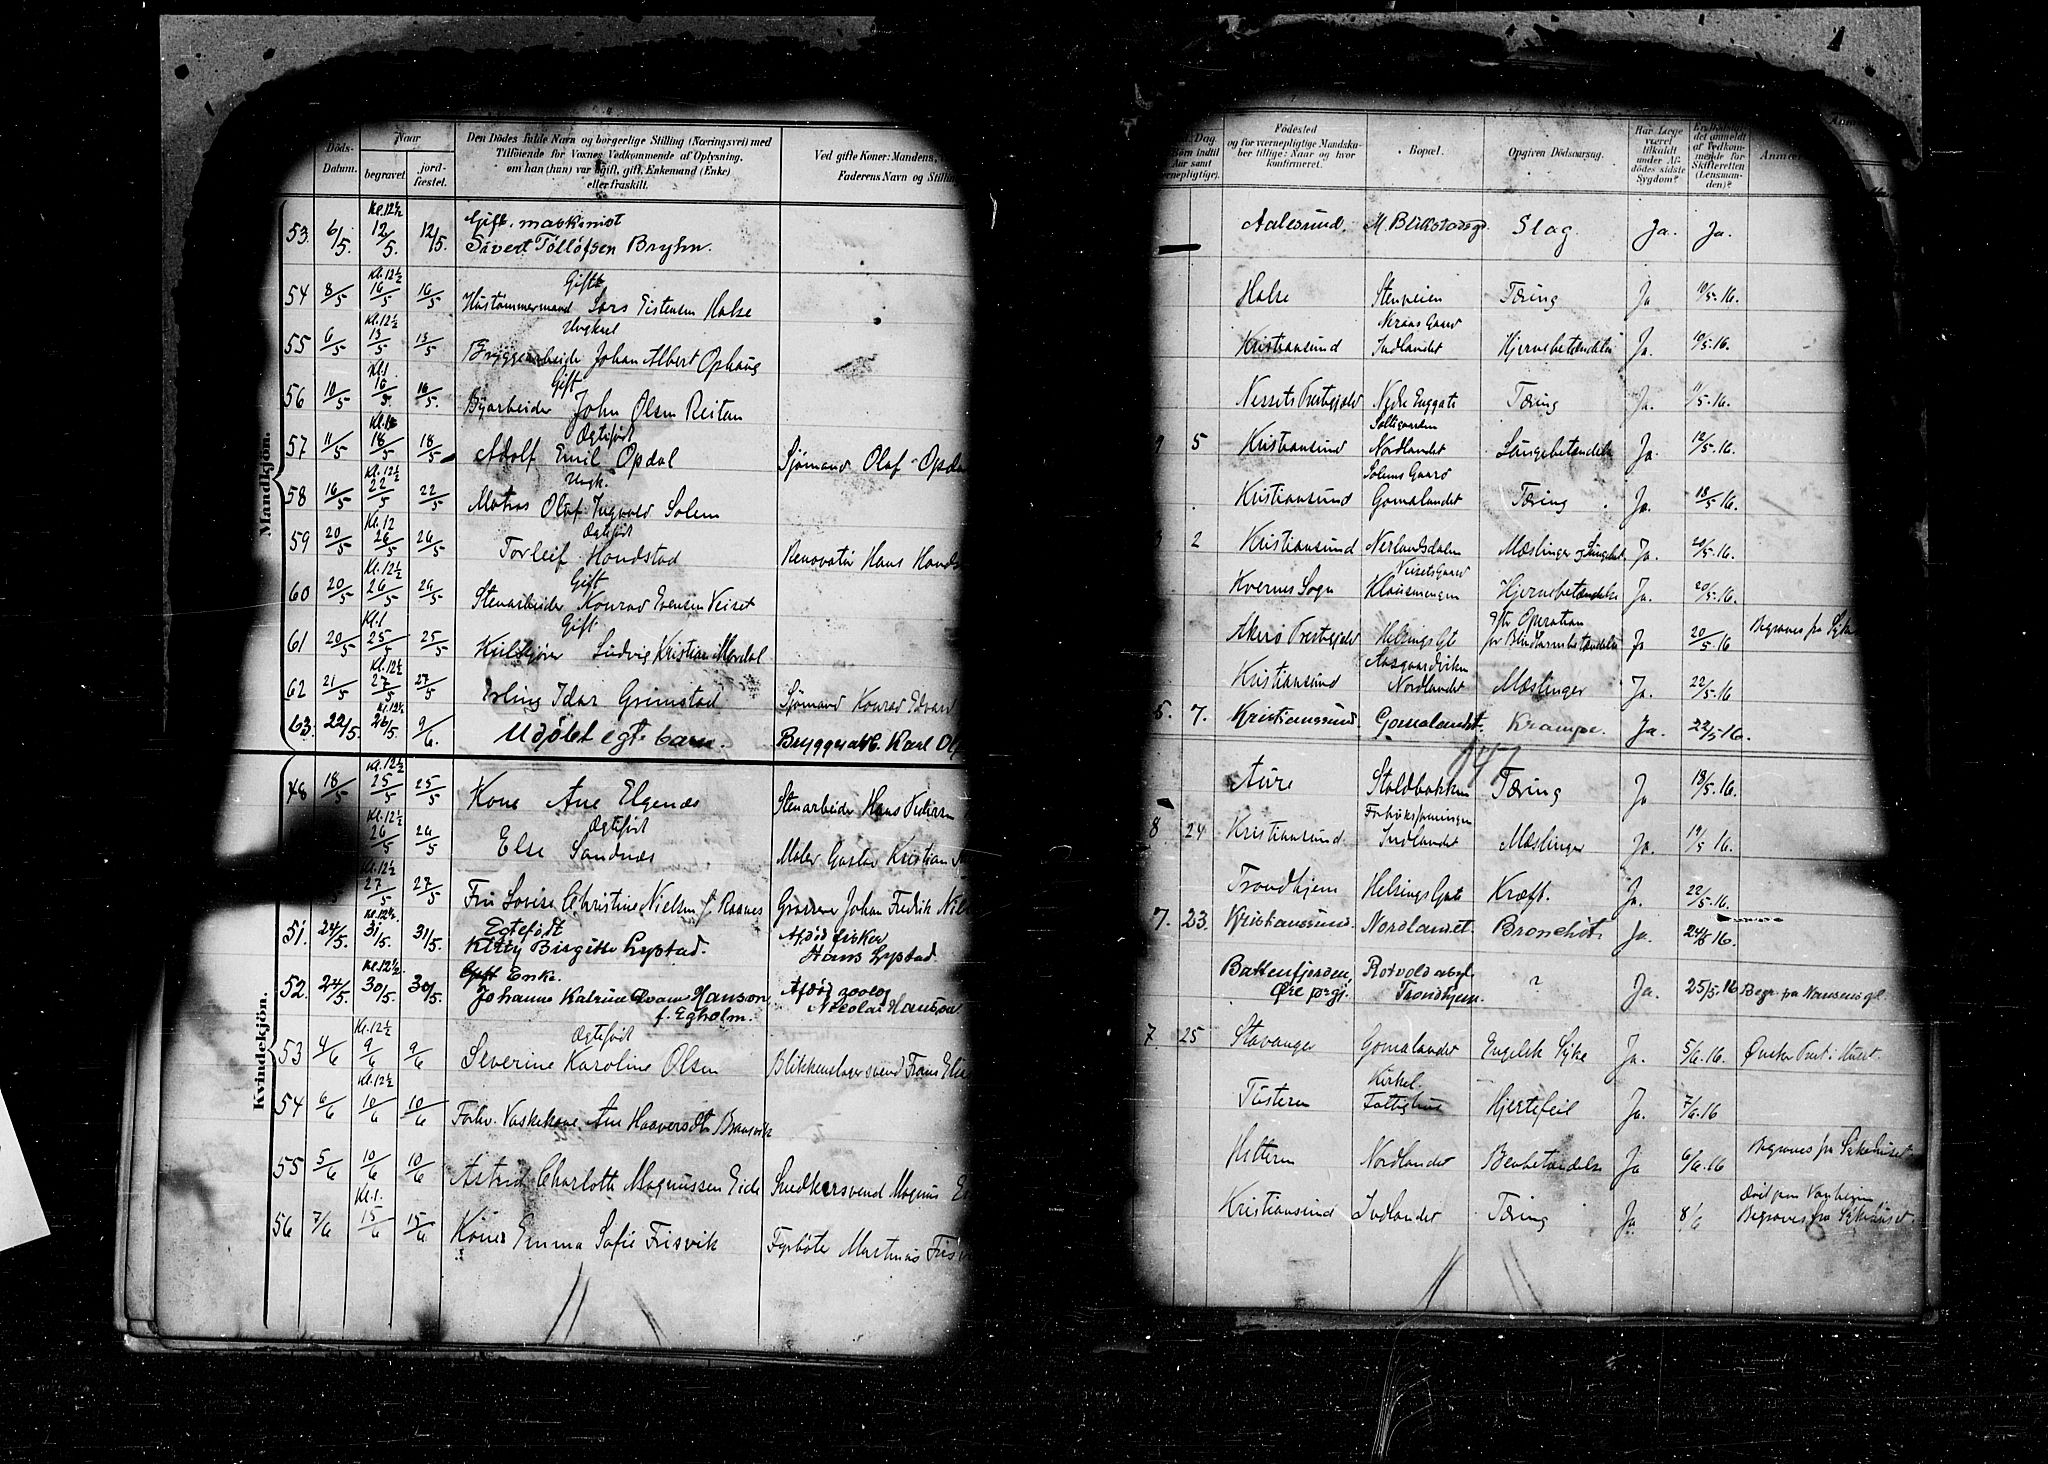 Döds-
Datum.
Naar
begravet
jord-
fæstet.
Den Dödes fulde Navn og borgerlige Stilling (Næringsvei) med
Tilföiende for Voxnes Vedkommende af Oplysning,
om han (hun) var ugift, gift, Enkemand (Enke)
eller fraskilt.
Ved gifte Koner: Mandens,
Faderens Navn og Stilling
Mandkjön.
53. 6/5. Kl. 12½ 12/5. 12/5. Gift. maskinist
Sivert Tolløfsen Bryhn.
54 8/5 Kl. 12½ 16/5 16/5 Gift
Hustømmermand Lars Eistensen Halse
55 6/5 Kl. 12½ 13/5 13/5 Ungkarl
Bryggearbeide Johan Albert Ophaug
56 10/5 Kl. 1 16/5. 16/5. Gift
Byarbeider John Olsen Reiten
57 11/5 18/5 18/5 Ægtefødt
Adolf Emil Opdal Sjømand Olaf Opdal
58 16/5 Kl. 12½ 22/5 22/5 Ungk.
Matros Olaf Ingvald Solem
59 20/5 Kl. 12 26/5 26/5 Ægtefødt
Torleif Hondstad Renovatør Hans Honds
60 20/5 Kl. 12½ 26/5 26/5 Gift
Stenarbeider Konrad Evensen Veiset
61 20/5 Kl. 1 25/5 25/5 Gift
Ludvig Kristian
62 21/5 Kl. 12½ 27/5 27/5
Erling Idar Grimstad Sjømand Konrad Edvard
63. 22/5. Kl. 12½ 26/5. 9/6. Udøbt egte barn. Bryggearb. Karl
Kvindekjön.
48 18/5 Kl. 12½ 25/5 25/5 Kone Ane Elgenes Stenarbeider Hans Pedersen
Kl. 12½ 26/5 26/5 Ægtefødt
Else Sandnes Maler Gustav Kristian
Kl. 12½ 27/5 27/5 Fru Lovise Christine Nielsen f. Raanes Grosserer Johan Fredrik Niels
51. 24/5. Kl. 12½. 31/5. 31/5. Egtefødt
Kitty Birgitte Lystad. Afdød fisker
Hans Lystad.
52. 24/5. Kl. 12½. 30/5. 30/5. Enke.
Johanne Katrine Hanson
f. Egholm. Afdød
Nikolai Hanson
53 4/6 Kl. 12½ 9/6 9/6 Ægtefødt
Severine Karoline Olsen Blikkenslagersvend Frans
54 6/6 Kl. 12½ 10/6 10/6 Forhv. Vaskekone Ane Haaversdtr.
55 5/6 10/6 10/6 Astrid Charlotte Magnussen Eide Snedkersvend Magnus
56 7/6 Kl. 1. 15/6 15/6 Kone Emma Sofie Frisvik Fyrbøter Martinus Fris
Dag.
Födested
og for værnepligtige Mandska-
ber tillige: Naar og hvor
konfirmeret.
Bopæl.
Opgiven Dödsaarsag.
Har Læge
været
tilkaldt
under Af-
dödes sidste
Sygdom?
det anmeldt
af Vedkom-
mende for
Skifteretten
(Lensman-
den)?
Aalesund. Slag. Ja. Ja.
Halse Stenveien Tæring Ja 10/5-16.
Kristiansund Indlandet Hjernebetændelse Ja. 10/5-16.
Nessets Prestegjeld Nedre Enggate Tæring Ja. 11/5-16.
9 5 Kristiansund Nordlandet Lungebetændelse Ja. 12/5-16.
Solems Gaard
Kristiansund Gomalandet Tæring Ja. 18/5-16.
3 2 Kristiansund Nerlandsdalen Mæslinger og Lungebet. Ja. 20/5-16.
Veisets Gaard
Kvernes Sogn Hjernebetændelse Ja. 20/5-16.
Akerø Prestegjeld Helsings Gt. eft. Operation
for Blindtarmbetændelse Ja 20/5-16 Begraves fra Syke
Kristiansund Nordlandet Mæslinger Ja. 22/5-16.
5. 7. Kristianssund. Gomalandet. Krampe. Ja. 22/5-16.
Aure Stoldbakken Tæring Ja 18/5-16.
8 24 Kristiansund. Indlandet Mæslinger Ja. 19/5 16.
Trondhjem Helsings Gate Kræft. Ja. 22/5-16.
7. 23. Kristianssund. Nordlandet. Bronchit. Ja. 24/5 16.
Battenfjorden,
Øre prgj. Rotvold asyl
Trondhjem. ? Ja. 25/5-16
7. 25 Stavanger Gomalandet Engelsk Syke Ja. 5/6-16.
Tusteren Kirkel.
Fattighus Hjertefeil Ja. 7/6.16
Hitteren Nordlandet Benbetændelse Ja 6/6-16 Begraves fra Sykehuset
Kristiansund Indlandet Tæring Ja 8/6 Begraves fra Sykehuset.